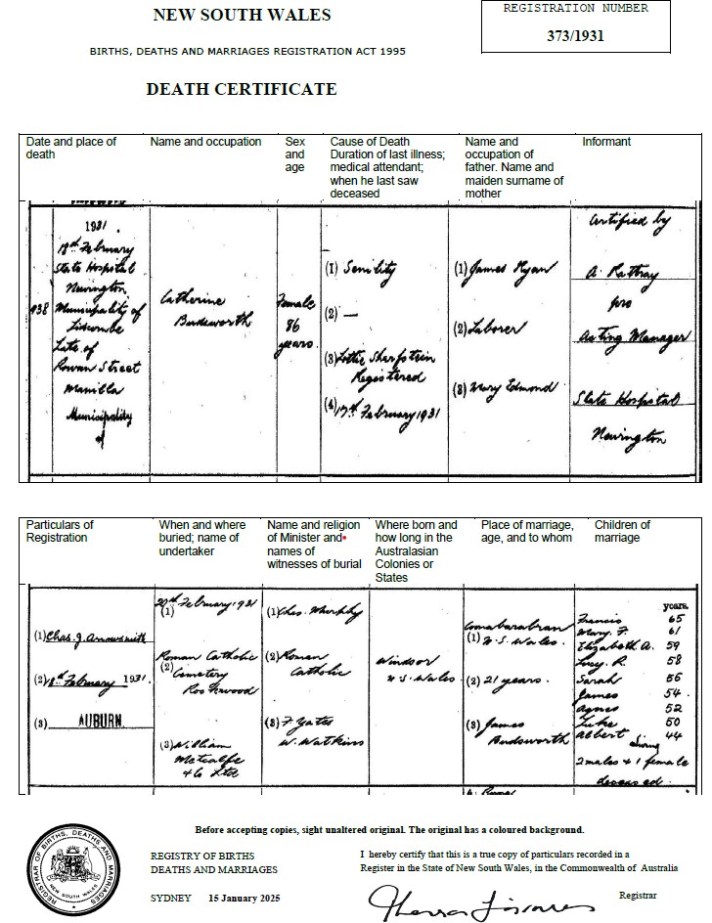 NEW SOUTH WALES
REGISTRATION NUMBER
373/1931
BIRTHS, DEATHS AND MARRIAGES REGISTRATION ACT 1995
DEATH CERTIFICATE
Date and place of
death
Name and occupation
Sex
and
age
Cause of Death
Duration of last illness;
medical attendant;
when he last saw
deceased
Name and
occupation of
father. Name and
maiden surname of
mother
Informant
938
1931.
18th February
State Hospital
Newington
Municipality of
Lidcombe
Late of
Rowan Street
Manilla
Municipality
of
Catherine
Budsworth
Female
86
years.
(1) Senility
(2) —
(3) Lottie Sharpstein
Registered
(4) 17th February 1931
(1) James Ryan
(2) Laborer
(3) Mary Edmond
Certified by
A. Rattray
pro
Acting Manager
State Hospital
Newington
Particulars of
Registration
When and where
buried; name of
undertaker
Name and religion
of Minister and
names of
witnesses of burial
Where born and
how long in the
Australasian
Colonies or
States
Place of marriage,
age, and to whom
Children of
marriage
(1) Chas. J. Arrowsmith
(2) 18th February 1931.
(3) AUBURN
20th February 1931
(1)
Roman Catholic
(2) Cemetery
Rookwood
(3) William
Metcalfe
& Co Ltd
(1) Chas. Murphy
(2) Roman
Catholic
(3) F Yates
W. Watkins
Windsor
N S. Wales
Coonabarabran
(1) N. S. Wales.
(2) 21 years.
(3) James
Budsworth
years.
Francis 65
Mary F. 61
Elizabeth A. 59
Lucy R. 58
Sarah 56
James 54.
Agnes 52
Luke 50
Albert 44
living
2 males & 1 female
deceased.
Before accepting copies, sight unaltered original. The original has a coloured background.
REGISTRAR OF BIRTHS, DEATHS AND MARRIAGES
NEW SOUTH WALES
REGISTRY OF BIRTHS
DEATHS AND MARRIAGES
SYDNEY 15 January 2025
I hereby certify that this is a true copy of particulars recorded in a
Register in the State of New South Wales, in the Commonwealth of Australia
Registrar